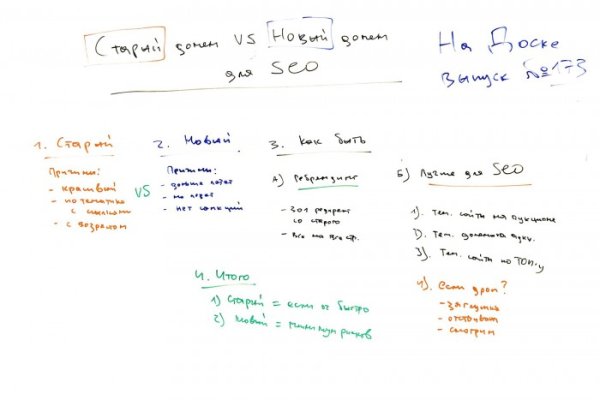 Старый домен VS Новый домен
для SEO
На Доске
выпуск №173
1. Старый
Причины:
- красивый
- по тематике
с ссылками
- с возрастом
VS
2. Новый
Причины:
- дольше
- не
- нет санкций
3. Как быть
А) Ребрендинг
- 301 редирект
со старого
- Все на все стр.
Б) Лучше для SEO
1). Тем. сайты на аукционе
2). Тем. домены аукц.
3). Тем. сайты по ТОП-у
4). Если дроп?
- заглушка
- отстаивать
- смотрим
4. Итого
1) Старый = если ог быстро
2) Новый = минимум рисков